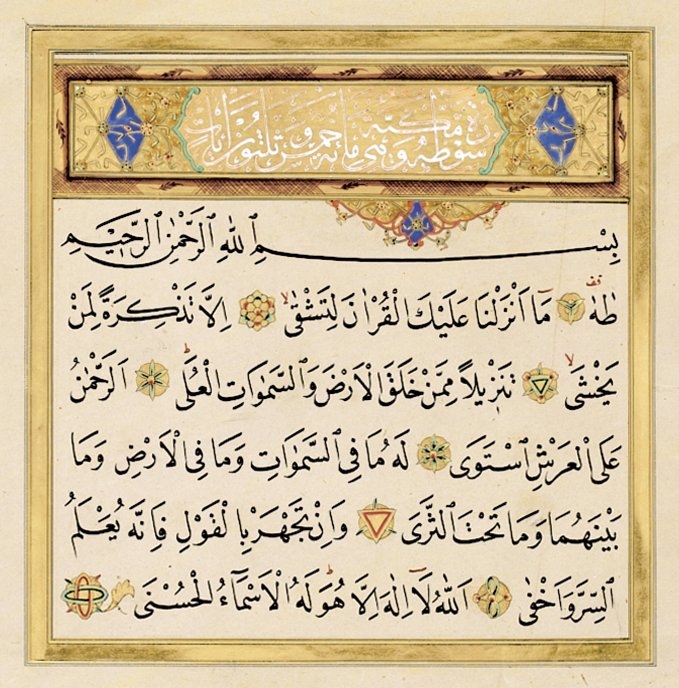 سورة طه مكية وهي مائة وخمس وثلثون ايات
بِسْمِ ٱللهِ ٱلرَّحْمٰنِ ٱلرَّحٖيمِ
طٰهٰ مَٓا اَنْزَلْنَا عَلَيْكَ الْقُرْاٰنَ لِتَشْقٰى اِلَّا تَذْكِرَةً لِمَنْ
يَخْشٰى تَنْزٖيلاً مِمَّنْ خَلَقَ الْاَرْضَ وَالسَّمٰوَاتِ الْعُلٰى اَلرَّحْمٰنُ
عَلَى الْعَرْشِ اسْتَوٰى لَهُ مَا فِى السَّمٰوَاتِ وَمَا فِى الْاَرْضِ وَمَا
بَيْنَهُمَا وَمَا تَحْتَ الثَّرٰى وَاِنْ تَجْهَرْ بِالْقَوْلِ فَاِنَّهُ يَعْلَمُ
السِّرَّ وَاَخْفٰى اَللهُ لَٓا اِلٰهَ اِلَّا هُوَ لَهُ الْاَسْمَٓاءُ الْحُسْنٰى